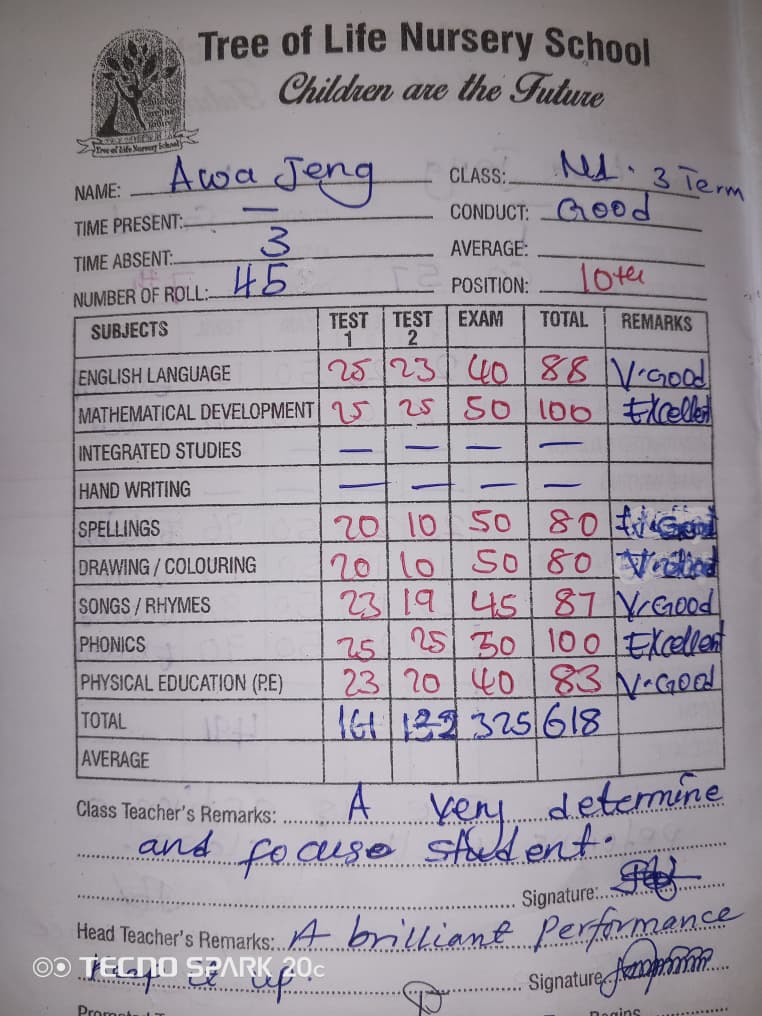 Tree of Life Nursery School
Children are the Future
Tree of Life Nursery School
NAME: Awa Jeng CLASS: N1. 3 Term
TIME PRESENT: — CONDUCT: Good
TIME ABSENT: 3 AVERAGE:
NUMBER OF ROLL: 45 POSITION: 10th
SUBJECTS TEST 1 TEST 2 EXAM TOTAL REMARKS
ENGLISH LANGUAGE 25 23 40 88 V.Good
MATHEMATICAL DEVELOPMENT 25 25 50 100 Excellent
INTEGRATED STUDIES — — — —
HAND WRITING — — — —
SPELLINGS 20 10 50 80 Good
DRAWING / COLOURING 20 10 50 80
SONGS / RHYMES 23 19 45 87 V.Good
PHONICS 25 25 50 100 Excellent
PHYSICAL EDUCATION (P.E) 23 20 40 83 V-Good
TOTAL 161 132 325 618
AVERAGE
Class Teacher's Remarks: A very determine
and focuse student.
Signature:
Head Teacher's Remarks: A brilliant Performance
keep it up. Signature
TECNO SPARK 20C
Begins